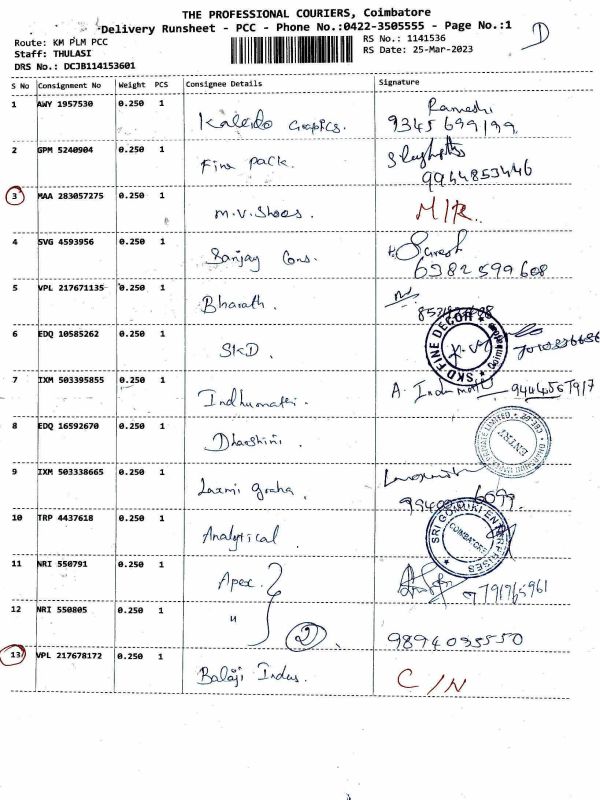 THE PROFESSIONAL COURIERS, Coimbatore
Delivery Runsheet - PCC - Phone No.:0422-3505555 - Page No.:1
Route: KM PLM PCC RS No.: 1141536
Staff: THULASI RS Date: 25-Mar-2023
DRS No.: DCJB114153601
D
S No Consignment No Weight PCS Consignee Details Signature
1 AWY 1957530 0.250 1 Kaleido Graphics. Ramesh 9345699199
2 GPM 5240904 0.250 1 Fine pack. 9944853446
3 MAA 283057275 0.250 1 M.V. Shoes. M/R.
4 SVG 4593956 0.250 1 Sanjay Cons. Suresh 6382599608
5 VPL 217671135 0.250 1 Bharath.
6 EDQ 10585262 0.250 1 SKD. SKD FINE DECOR
7 IXM 503395855 0.250 1 Indhumathi. A. Indhumathi
8 EDQ 16592670 0.250 1 Dharshini. ENTRY
9 IXM 503338665 0.250 1 Laxmi graha.
10 TRP 4437618 0.250 1 Analytical. ENTERPRISES COIMBATORE
11 NRI 550791 0.250 1 Apex.
12 NRI 550805 0.250 1 " 2 9894035550
13 VPL 217678172 0.250 1 Balaji Indus. C/N